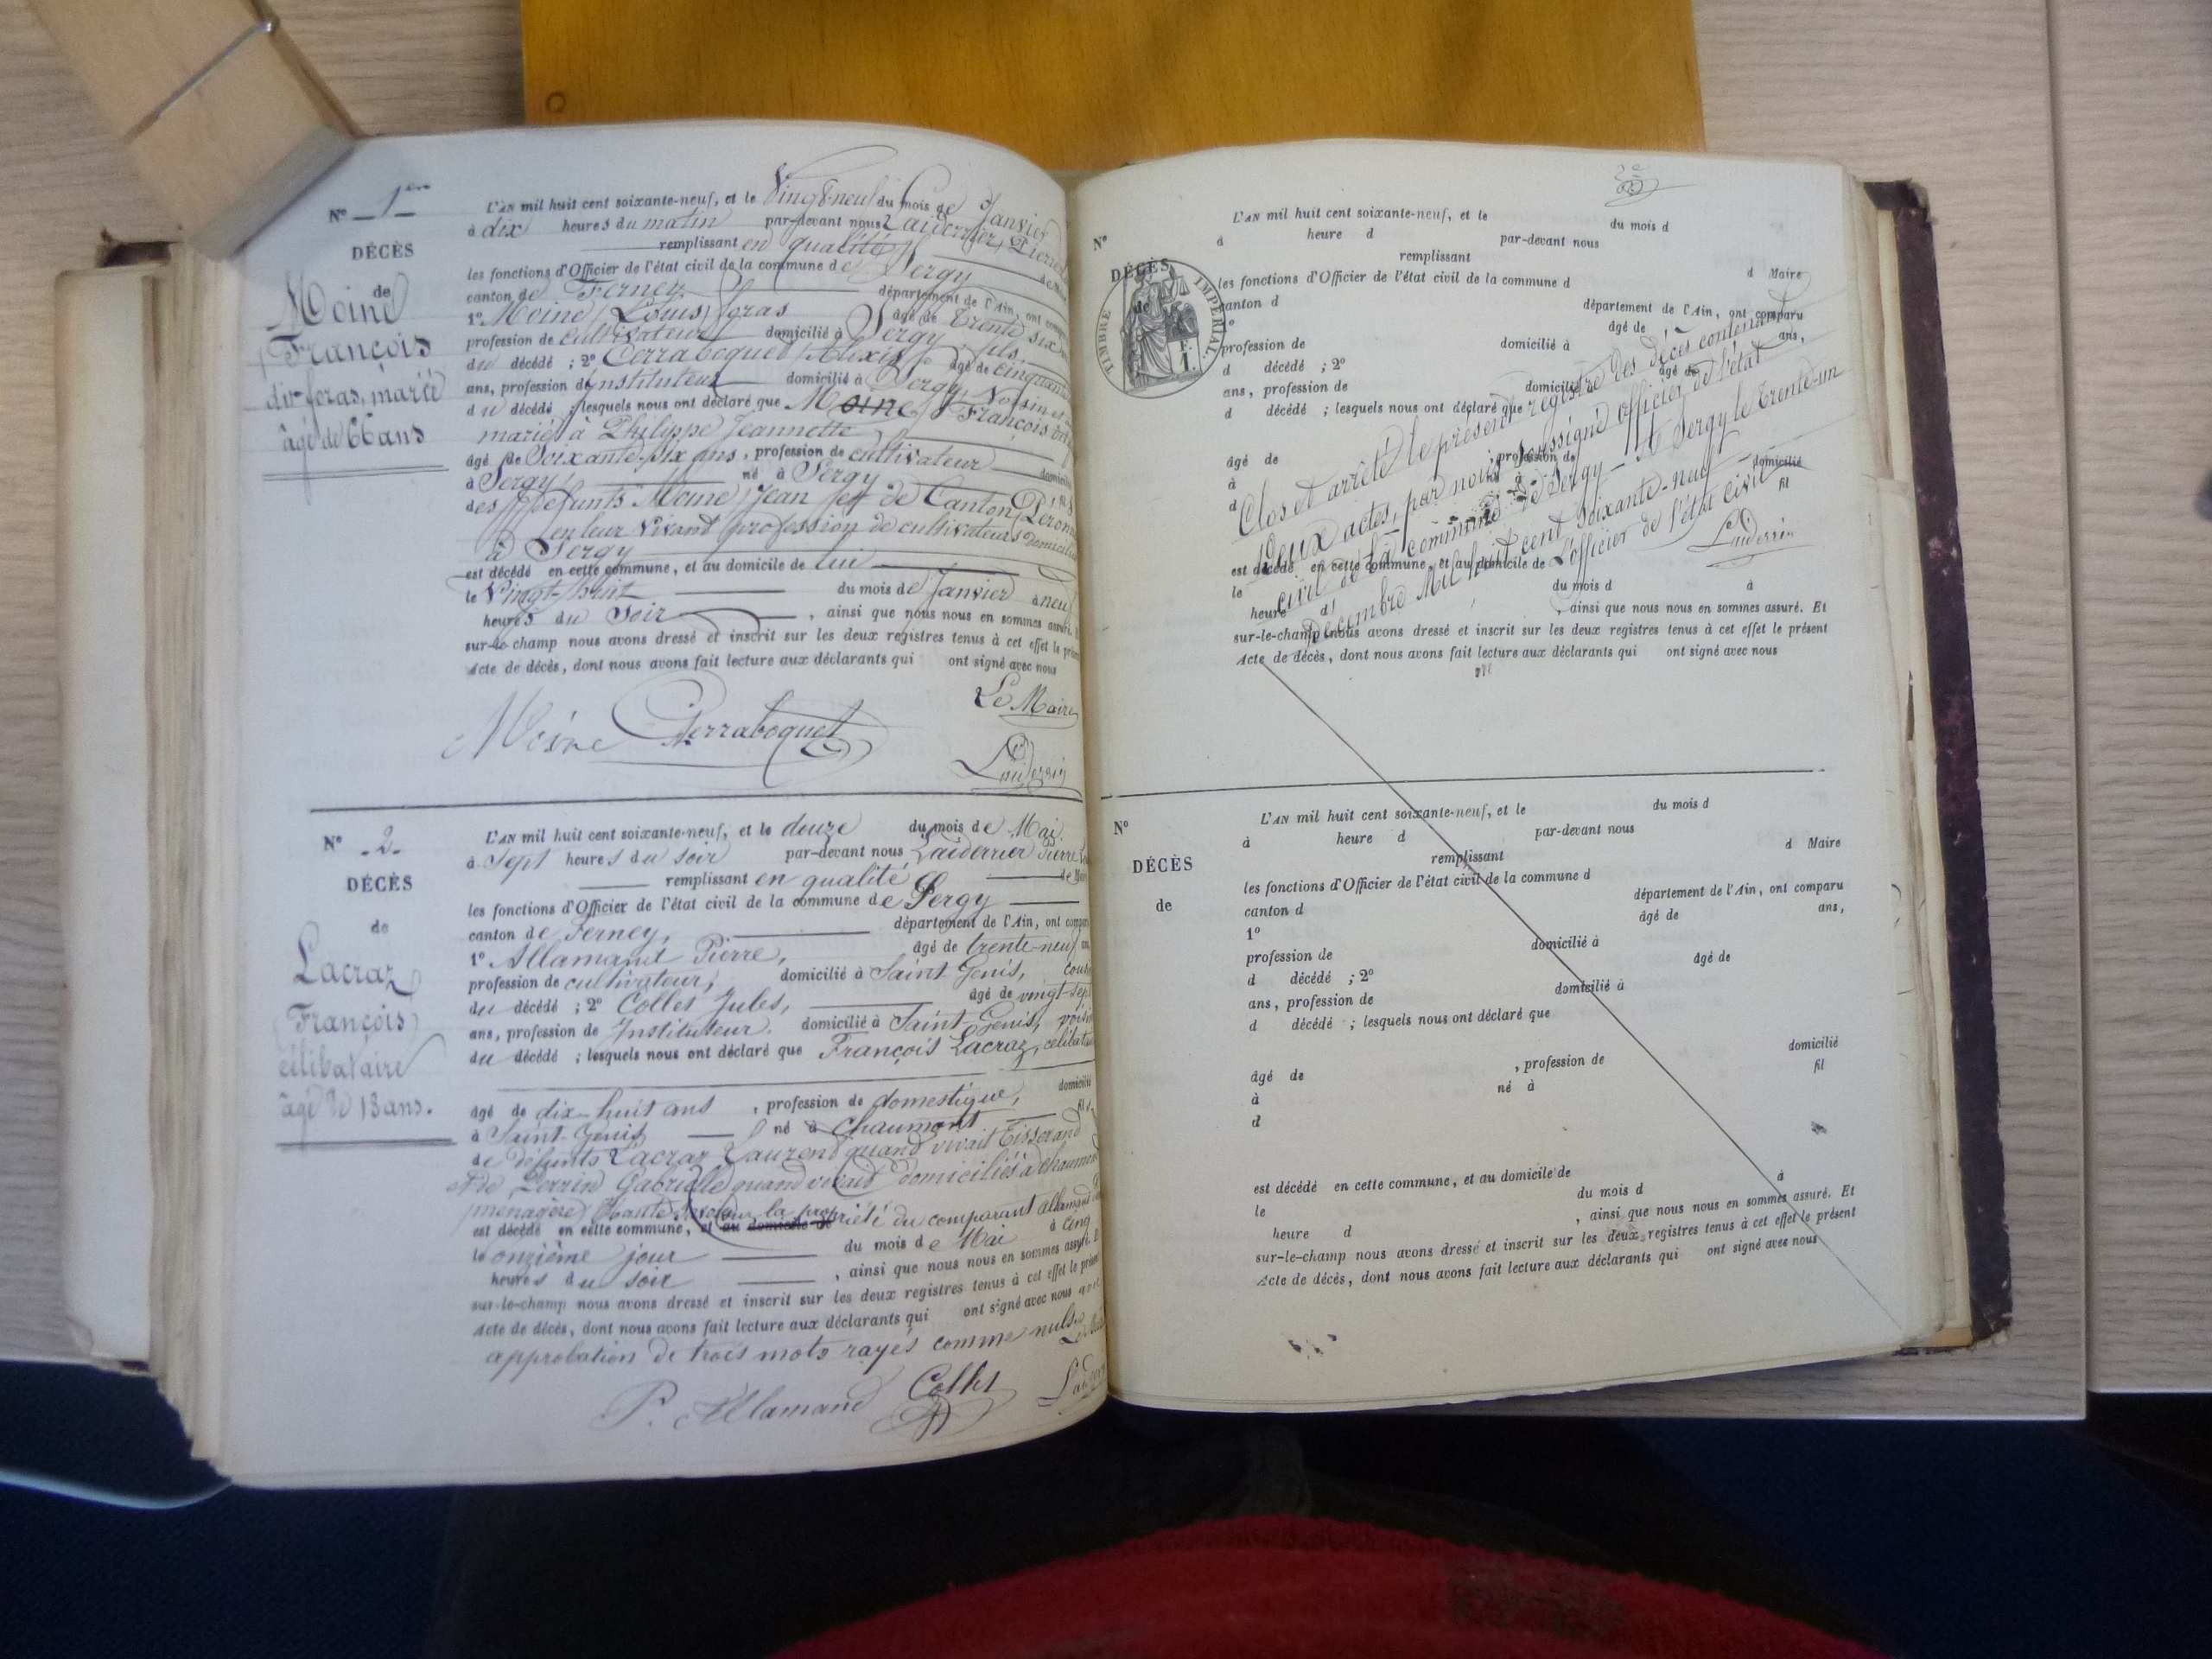 N° 1er
DÉCÈS
de
Moine
François
dit foras, marié
âgé de 66 ans
L'AN mil huit cent soixante-neuf, et le Vingt-neuf du mois de Janvier
à dix heures du matin par-devant nous Laiderrier, Pierre
remplissant en qualité de Maire
les fonctions d'Officier de l'état civil de la commune de Sergy
canton de Ferney département de l'Ain, ont comparu
1° Moine Louis, foras âgé de trente six
profession de cultivateur domicilié à Sergy, fils,
du décédé ; 2° Perraboquet Alexis âgé de cinquante
ans, profession d'instituteur domicilié à Sergy, Voisin
du décédé ; lesquels nous ont déclaré que Moine François dit
marié à Philippe Jeannette
âgé de Soixante-six ans, profession de cultivateur domicilié
à Sergy né à Sergy fils
des défunts Moine Jean et de Canton
en leur vivant profession de cultivateurs domiciliés
à Sergy
est décédé en cette commune, et au domicile de lui
le Vingt-huit du mois de Janvier à neuf
heures du Soir , ainsi que nous nous en sommes assuré.
sur-le-champ nous avons dressé et inscrit sur les deux registres tenus à cet effet le présent
Acte de décès, dont nous avons fait lecture aux déclarants qui ont signé avec nous
Le Maire
Moine Perraboquet
Laiderrier
N° 2
DÉCÈS
de
Lacraz
François
célibataire
âgé de 18 ans.
L'AN mil huit cent soixante-neuf, et le douze du mois de Mai
à Sept heures du soir par-devant nous Laiderrier Pierre
remplissant en qualité de Maire
les fonctions d'Officier de l'état civil de la commune de Sergy
canton de Ferney, département de l'Ain, ont comparu
1° Allamand Pierre, âgé de trente-neuf ans
profession de cultivateur, domicilié à Saint Genis, cousin
du décédé ; 2° Collet Jules, âgé de vingt-sept
ans, profession de Instituteur. domicilié à Saint-Genis, voisin
du décédé ; lesquels nous ont déclaré que François Lacraz, célibataire
âgé de dix-huit ans , profession de domestique, domicilié
à Saint-Genis né à Chaumont fils
de défunts Lacraz Laurent quand vivait Tisserand
et de Perrin Gabrielle quand vivait domiciliés à Chaumont
ménagère Haute Savoie
est décédé en cette commune, et au domicile de sur la propriété du comparant Allamand
le onzième jour du mois de Mai à cinq
heures du soir , ainsi que nous nous en sommes assuré. Et
sur-le-champ nous avons dressé et inscrit sur les deux registres tenus à cet effet le présent
Acte de décès, dont nous avons fait lecture aux déclarants qui ont signé avec nous avec
approbation de trois mots rayés comme nuls.
P. Allamand Collet
N°
DÉCÈS
de
TIMBRE IMPÉRIAL.
1 F.
L'AN mil huit cent soixante-neuf, et le du mois d
à heure d par-devant nous
remplissant d Maire
les fonctions d'Officier de l'état civil de la commune d
canton d département de l'Ain, ont comparu
1° âgé de ans,
profession de domicilié à
d décédé ; 2° âgé de
ans, profession de domicilié à
d décédé ; lesquels nous ont déclaré que
âgé de , profession de domicilié
à né à fil
d
est décédé en cette commune, et au domicile de
le du mois d à
heure d , ainsi que nous nous en sommes assuré. Et
sur-le-champ nous avons dressé et inscrit sur les deux registres tenus à cet effet le présent
Acte de décès, dont nous avons fait lecture aux déclarants qui ont signé avec nous
Clos et arrêté le présent registre des décès contenant
deux actes, par nous soussigné officier de l'état
civil de la commune de Sergy - A Sergy le trente-un
décembre Mil huit cent soixante-neuf
L'officier de l'état civil
Laiderrier
N°
DÉCÈS
de
L'AN mil huit cent soixante-neuf, et le du mois d
à heure d par-devant nous
remplissant d Maire
les fonctions d'Officier de l'état civil de la commune d
canton d département de l'Ain, ont comparu
1° âgé de ans,
profession de domicilié à
d décédé ; 2° âgé de
ans, profession de domicilié à
d décédé ; lesquels nous ont déclaré que
âgé de , profession de domicilié
à né à fil
d
est décédé en cette commune, et au domicile de
le du mois d à
heure d , ainsi que nous nous en sommes assuré. Et
sur-le-champ nous avons dressé et inscrit sur les deux registres tenus à cet effet le présent
Acte de décès, dont nous avons fait lecture aux déclarants qui ont signé avec nous